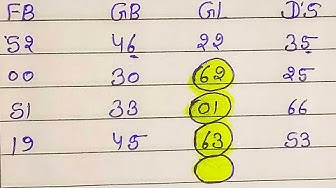 FB GB GL DS
52 46 22 35
00 30 62 25
51 33 01 66
19 45 63 53